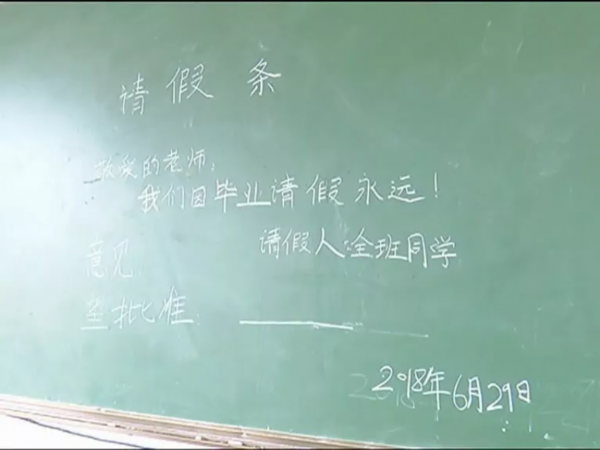 请假条
敬爱的老师:
我们因毕业请假永远!
请假人:全班同学
意见
批准
2018年6月29日